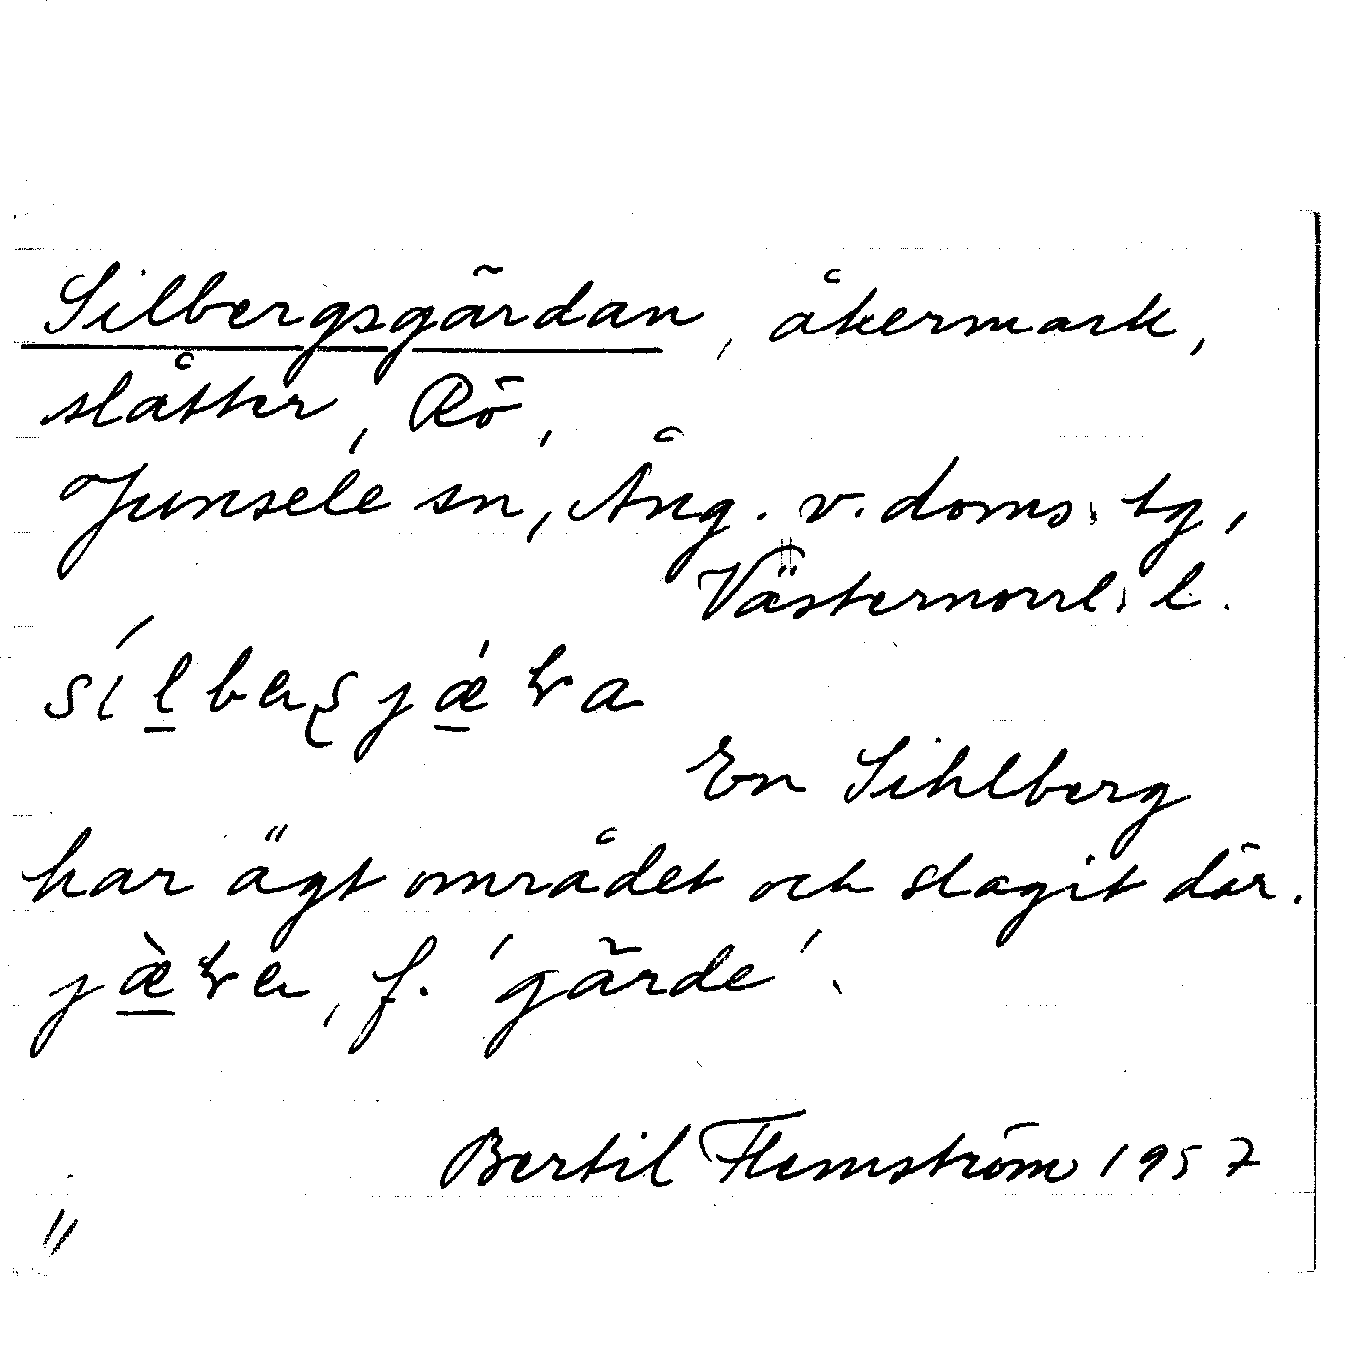 Silbergsgärdan, åkermark,
slåtter, Rö,
Junsele sn, Ång. v. doms. tg,
Västernorrl. l.
En Sihlberg
har ägt området och slagit där.
f. 'gärde'.
Bertil Flemström 1957